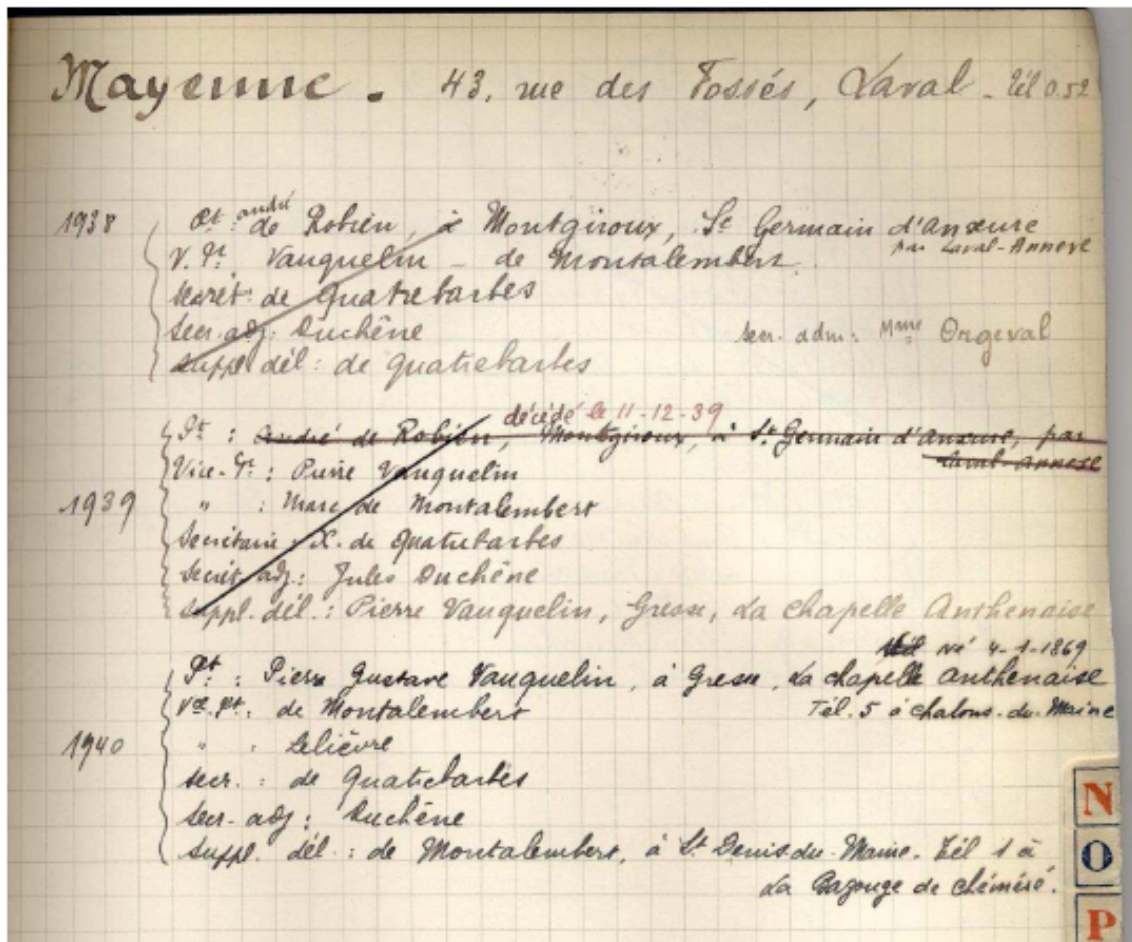 Mayenne. 43, rue des Fossés, Laval - Tél 0.52
1938
Pt : andré de Robien, à Montgiroux, St Germain d'Anxure
par Laval-Annexe
V. Pt. Vauquelin - de Montalembert
secrét: de Quatrebarbes
secr. adj: Duchêne
secr. adm: Mme Orgeval
suppl dél: de Quatrebarbes
décédé le 11-12-39
Pt : André de Robien, Montgiroux, à St Germain d'Anxure, par
Laval-Annexe
Vice-Pt : Pierre Vauquelin
1939
" : Marc de Montalembert
Secrétaire : X. de Quatrebarbes
Secrét. adj: Jules Duchêne
Suppl. dél.: Pierre Vauquelin, Gresse, La Chapelle Anthenaise
né 4-1-1869
Pt : Pierre Gustave Vauquelin, à Gresse, La chapelle Anthenaise
Vce. Pt. de Montalembert
Tél. 5 à chalons-du-Maine
1940
" : Lelièvre
secr. : de Quatrebarbes
secr- adj: Duchêne
suppl. dél : de Montalembert, à St Denis-du-Maine. Tél 1 à
La Bazouge de chéméré.
N
O
P